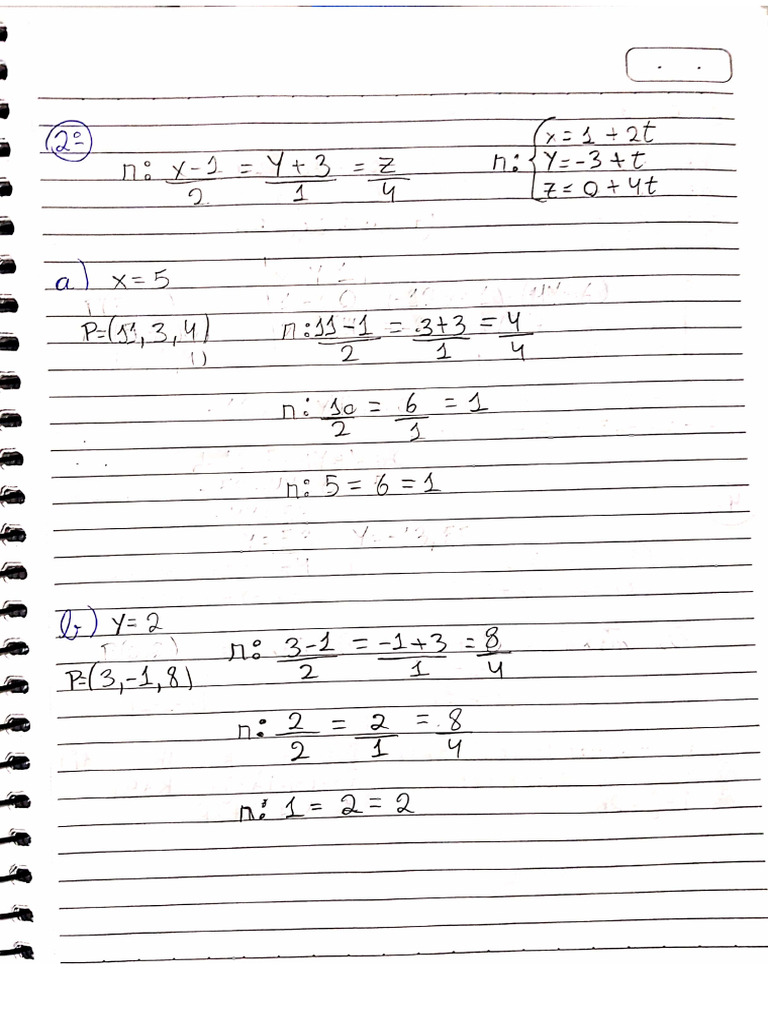 2º
r: x-1/2 = y+3/1 = z/4    r: { x = 1 + 2t
y = -3 + t
z = 0 + 4t
a) x = 5
P=(11, 3, 4)    r: 11-1/2 = 3+3/1 = 4/4
r: 10/2 = 6/1 = 1
r: 5 = 6 = 1
b) y = 2
r: 3-1/2 = -1+3/1 = 8/4
P=(3,-1,8)
r: 2/2 = 2/1 = 8/4
r: 1 = 2 = 2